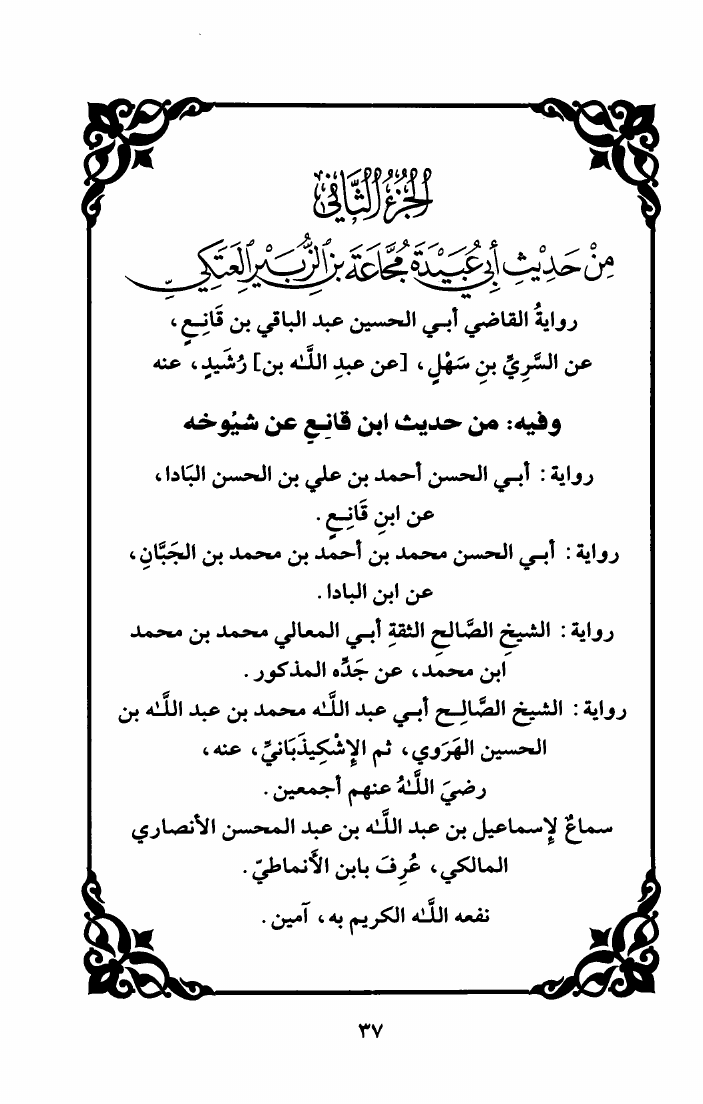 الجُزْءُ الثَّانِي
مِنْ حَدِيْثِ أَبِي عُبَيْدَةَ مُجَّاعَةَ بْنِ الزُّبَيْرِ العَتَكِيِّ
روايةُ القاضي أبي الحسين عبد الباقي بن قَانِعٍ،
عن السَّرِيِّ بنِ سَهْلٍ، [عن عبدِ اللَّه بن] رُشَيدٍ، عنه
وفيه: من حديث ابن قانِعٍ عن شيُوخه
رواية: أبي الحسن أحمد بن علي بن الحسن البَادا،
عن ابنِ قَانِعٍ.
رواية: أبي الحسن محمد بن أحمد بن محمد بن الجَبَّانِ،
عن ابن البادا.
رواية: الشيخِ الصَّالحِ الثقةِ أبي المعالي محمد بن محمد
ابن محمد، عن جَدِّه المذكور.
رواية: الشيخ الصَّالِحِ أبي عبد اللَّه محمد بن عبد اللَّه بن
الحسين الهَرَوي، ثم الإِشْكِيذَبَانيِّ، عنه،
رضيَ اللَّهُ عنهم أجمعين.
سماعٌ لإِسماعيل بن عبد اللَّه بن عبد المحسن الأنصاري
المالكي، عُرِفَ بابن الأَنماطيّ.
نفعه اللَّه الكريم به، آمين.
٣٧